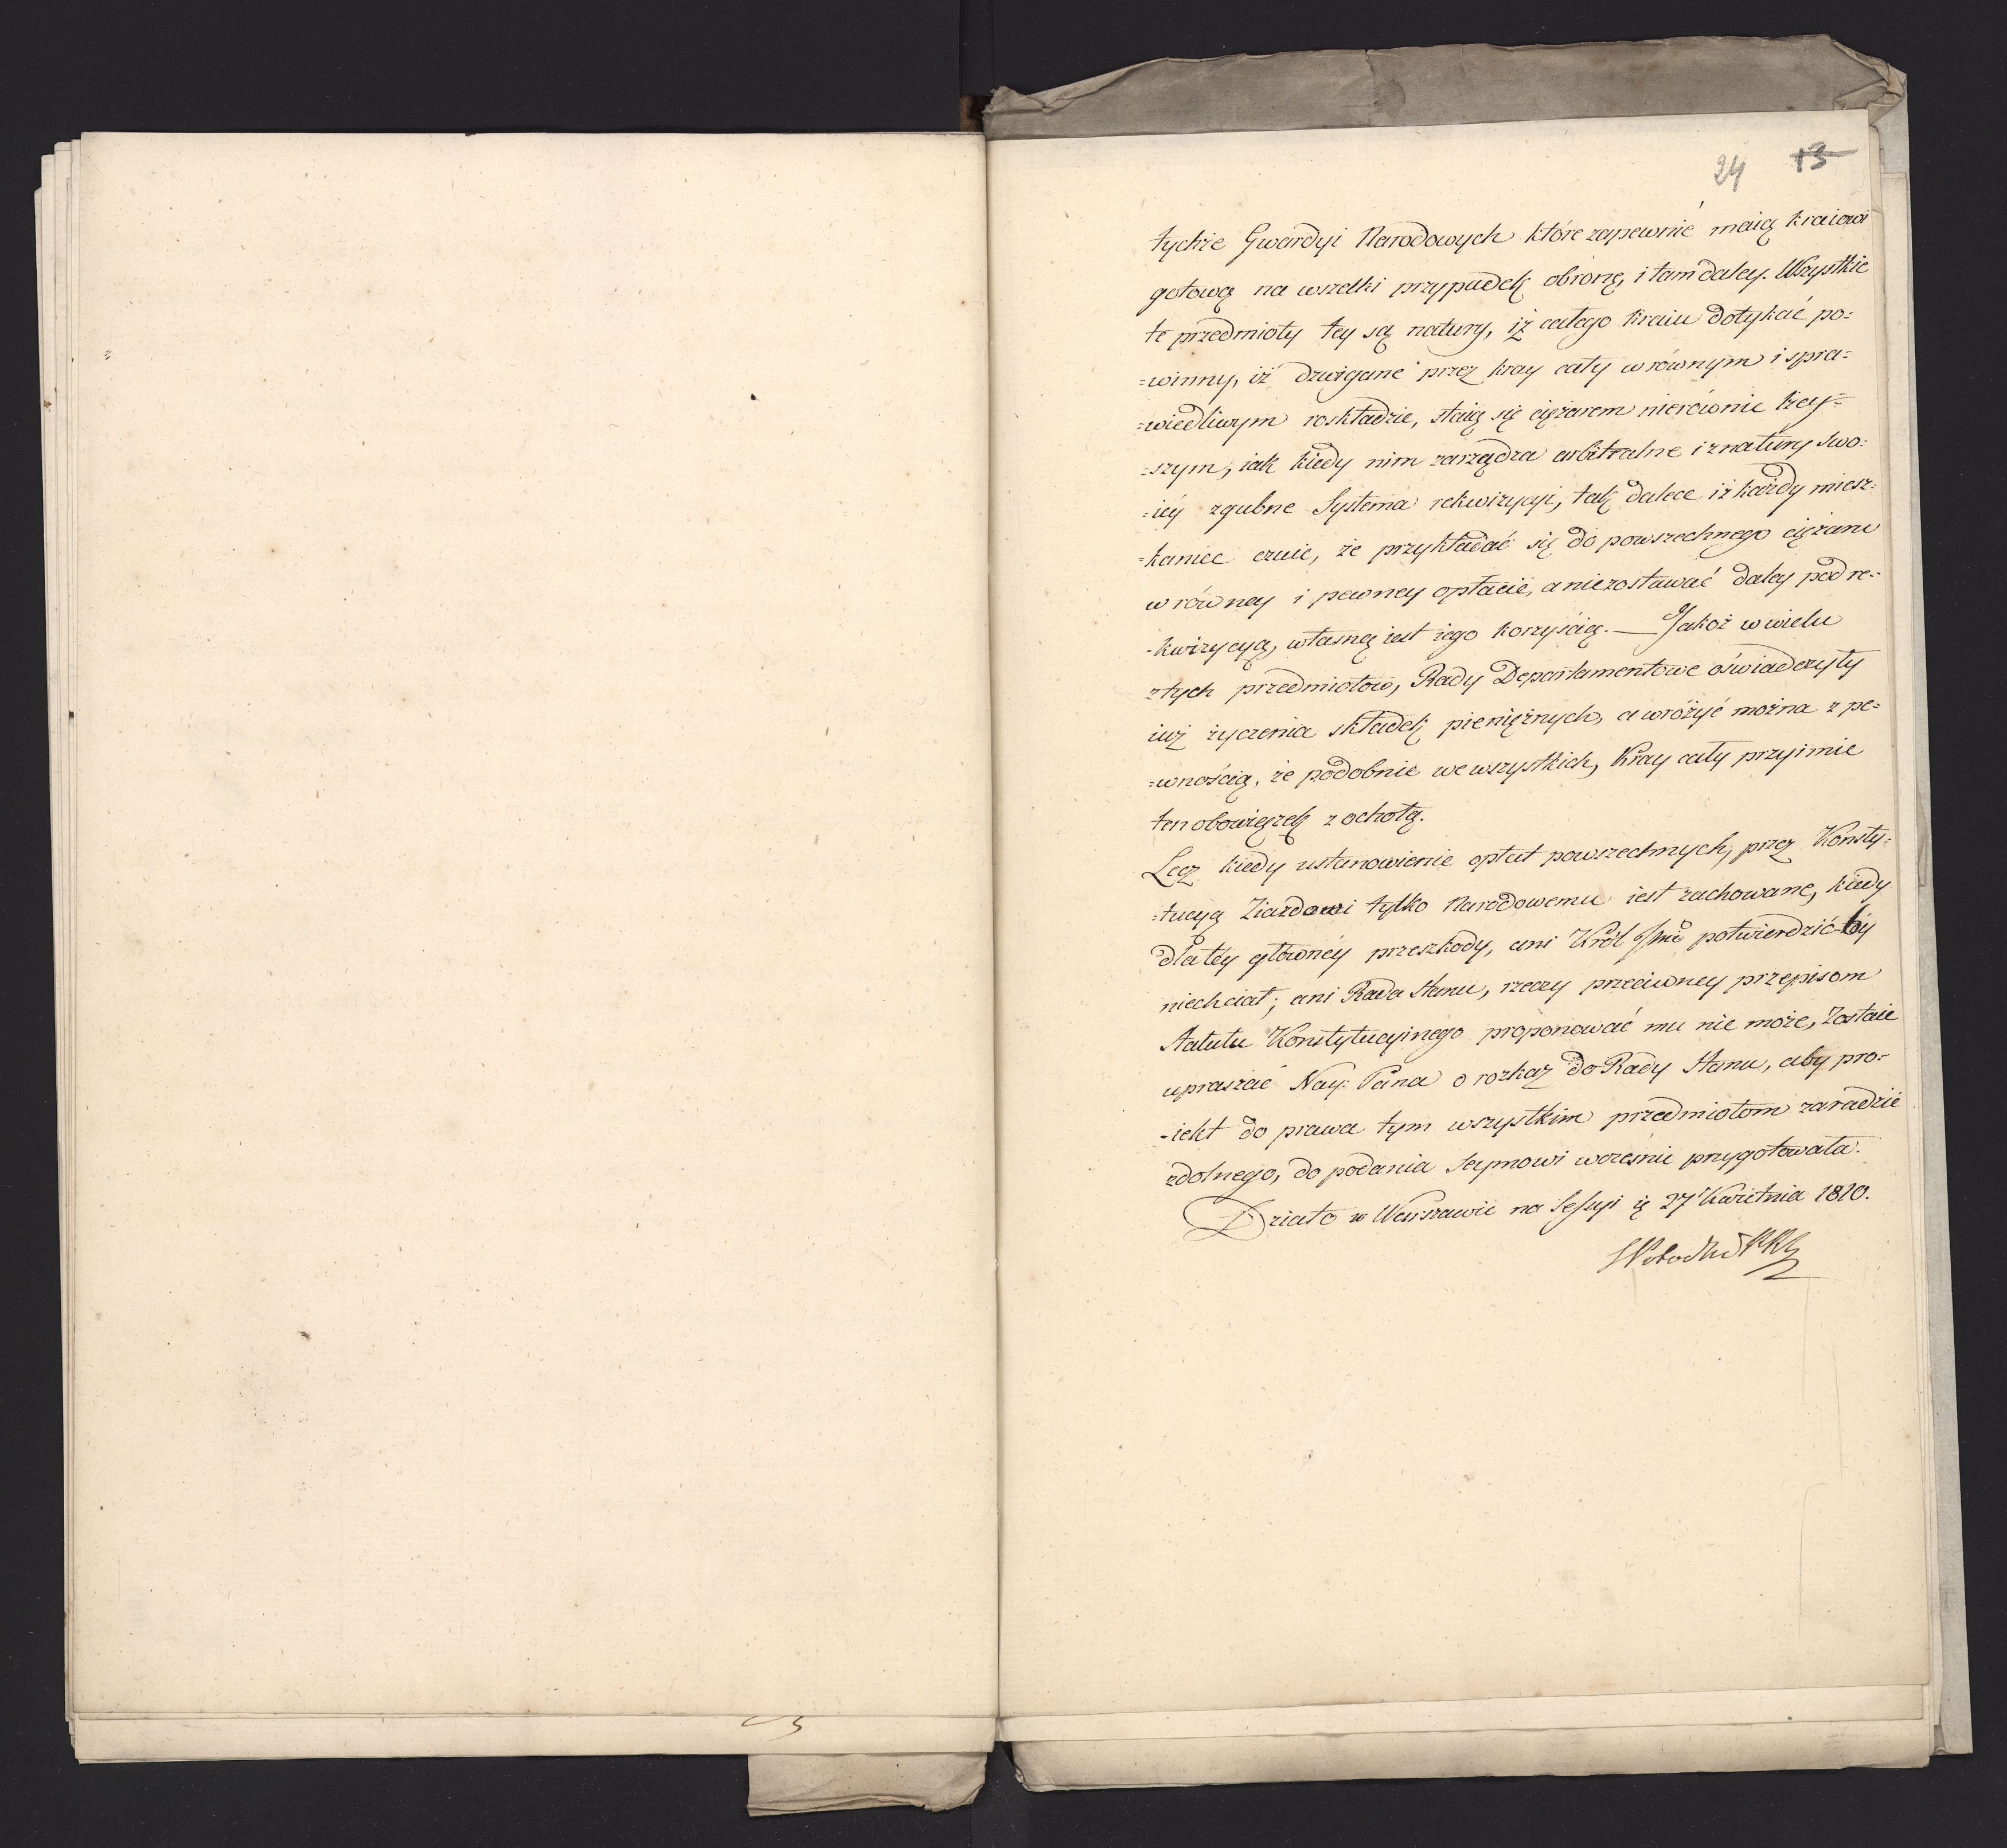 24 13
tychże Gwardyi Narodowych które zapewnić maią kraiowi
gotową na wszelki przypadek obronę, i tam daley. Wszystkie
te przedmioty tey są natury, iż całego kraiu dotykać po=
=winny, iż dzwigane przez kray cały w równym i spra=
=wiedliwym roskładzie, staią się ciężarem nierównie lżey=
=szym, iak kiedy nim zarządza arbitralne i z natury swo=
=iéy zgubne Systema rekwizycyi, tak dalece iż każdy miesz=
=kaniec czuie, że przykładać się do powszechnego ciężaru
w równey i pewney opłacie, a niezostawać daley pod re=
-kwizycyą, własną iest iego korzyścią. — Jakoż w wielu
z tych przedmiotow, Rady Departamentowe oświadczyły
iuż życzenia składek pieniężnych, a wróżyć można z pe=
=wnością, że podobnie we wszystkich, Kray cały przyimie
ten obowiązek z ochotą.
Lecz kiedy ustanowienie opłat powszechnych, przez Konsty=
=tucyą Ziazdowi tylko Narodowemu iest zachowane, kiedy
dla téy główney przeszkody, ani Król Jmć potwierdzić by
niechciał; ani Rada Stanu, rzeczy przeciwney przepisom
Statutu Konstytucyinego proponować mu nie może, Zostaie
upraszać Nay: Pana o rozkaz do Rady Stanu, aby pro=
-iekt do prawa tym wszystkim przedmiotom zaradzić
zdolnego, do podania Seymowi wcześnie przygotowała.
Działo w Warszawie na Sessyi 27 Kwietnia 1810.